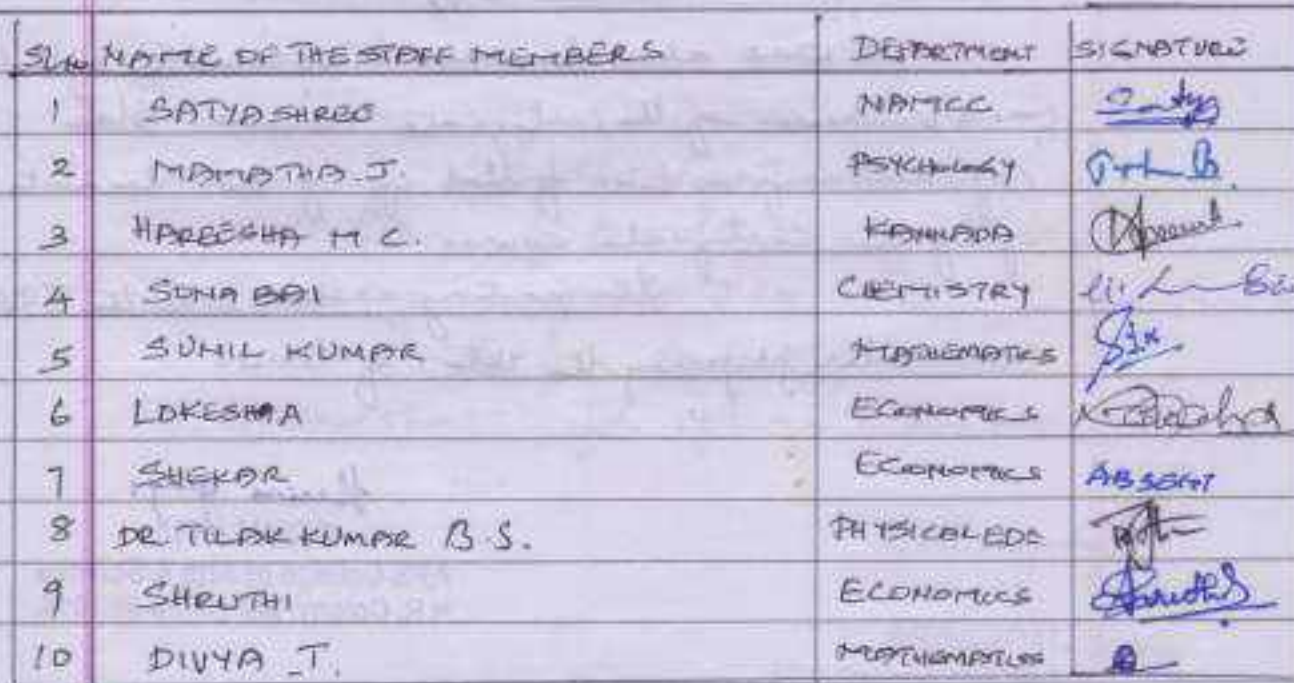 SL.No NAME OF THE STAFF MEMBERS DEPARTMENT SIGNATURE
1 SATYASHREE NAMCC
2 MAMATHA.J. PSYCHOLOGY
3 HAREESHA M C. KANNADA
4 SONA BAI CHEMISTRY
5 SUNIL KUMAR MATHEMATICS
6 LOKESHAA ECONOMICS
7 SHEKAR ECONOMICS ABSENT
8 DR. TILAK KUMAR B.S. PHYSICAL EDC
9 SHRUTHI ECONOMICS
10 DIVYA .T. MATHEMATICS